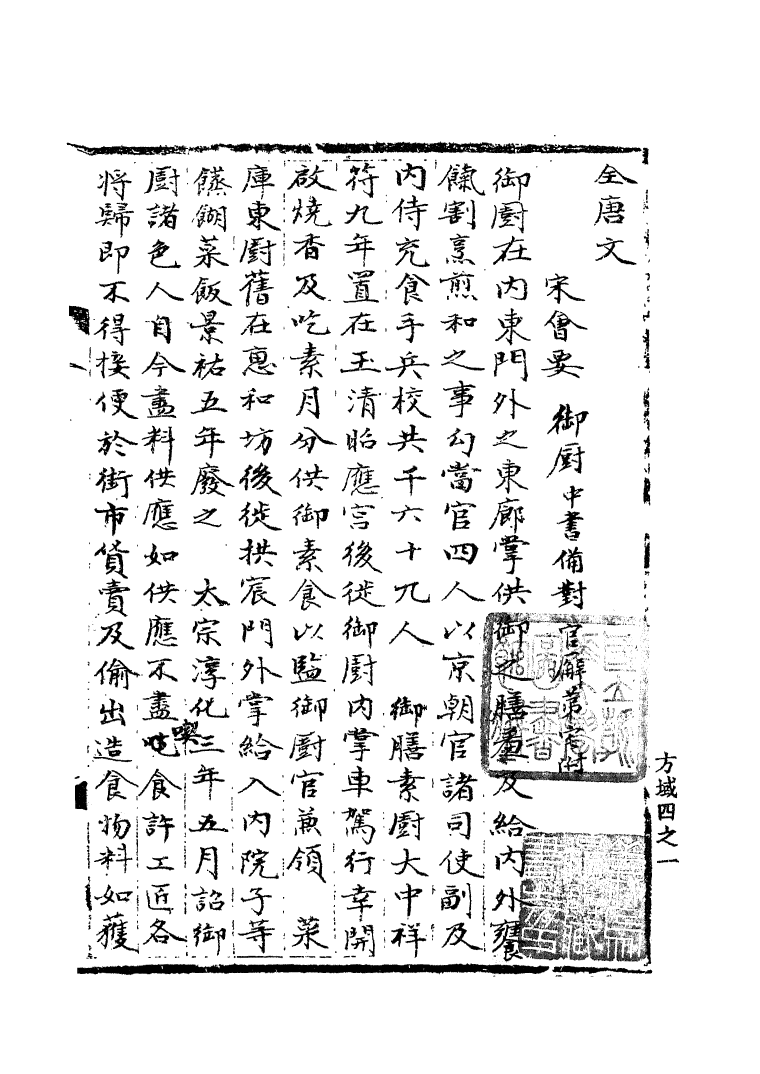 全唐文
宋會要　御厨中書備對　官廨第宅附
御厨在內東門外之東廊掌供御之膳羞及給內外饔
餼割烹煎和之事勾當官四人以京朝官諸司使副及
內侍充食手兵校共千六十九人　御膳素厨大中祥
符九年置在玉清昭應宮後徙御厨內掌車駕行幸開
啟燒香及吃素月分供御素食以監御厨官兼領　菜
庫東厨舊在惠和坊後徙拱宸門外掌給入內院子等
饊餬菜飯景祐五年廢之　太宗淳化三年五月詔御
厨諸色人自今盡料供應如供應不盡喫食許工匠各
將歸即不得接便於街市貨賣及偷出造食物料如獲
方域四之一